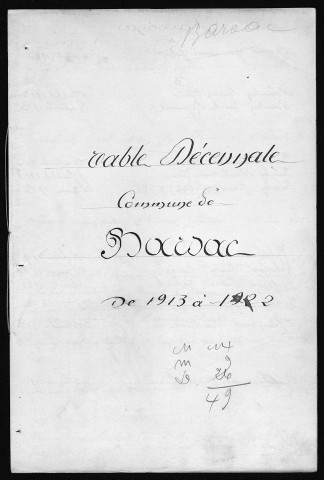 Barsac
Table Décennale
Commune de
Barsac
De 1913 à 1922
N 14
M 9
D 26
49